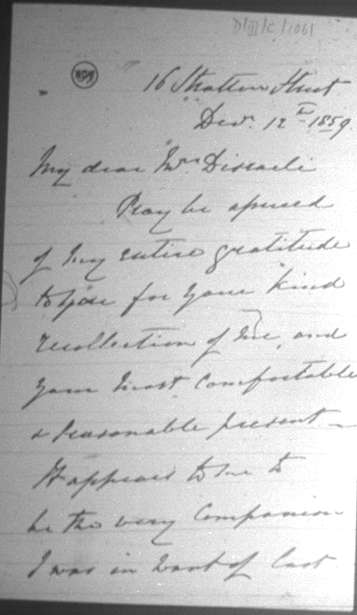 D/III/C/1061
16 Stratton Street
Decr. 12th 1859
My dear Mrs. Disraeli
Pray be assured
of my entire gratitude
to you for your kind
recollection of me, and
your most comfortable
& seasonable present—
It appears to me to
be the very Companion
I was in want of last